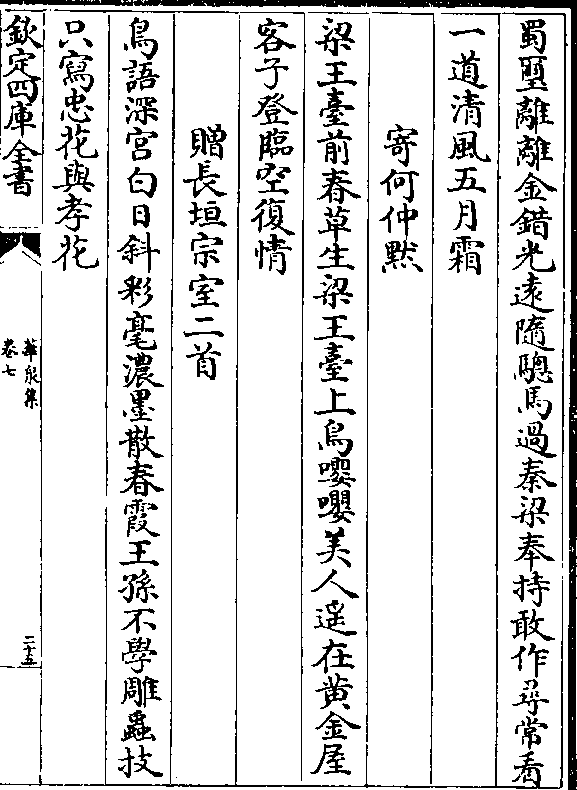 蜀璽離離金錯光遠隨驄馬過秦梁奉持敢作尋常看
一道清風五月霜
寄何仲黙
梁王臺前春草生梁王臺上鳥嚶嚶美人遥在黄金屋
客子登臨空復情
贈長垣宗室二首
鳥語深宫白日斜彩毫濃墨散春霞王孫不學雕蟲技
只寫忠花與孝花
欽定四庫全書
華泉集
卷七
二十五